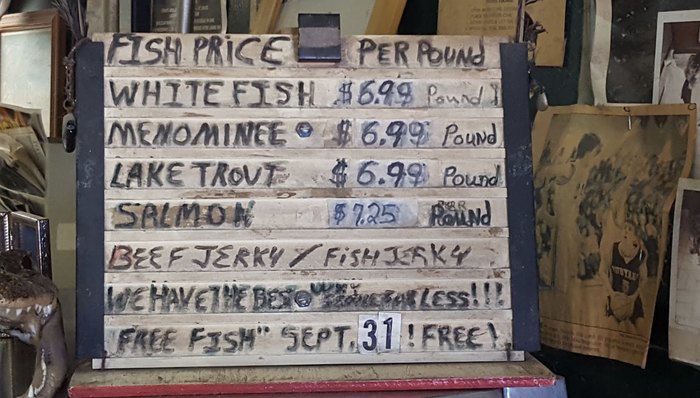 FISH PRICE PER POUND
WHITE FISH $6.99 Pound
MENOMINEE $6.99 Pound
LAKE TROUT $6.99 Pound
SALMON $7.25 POUNd
BEEF JERKY / FISH JERKY
WE HAVE THE BEST LESS!!!
"FREE FISH" SEPT. 31 ! FREE!